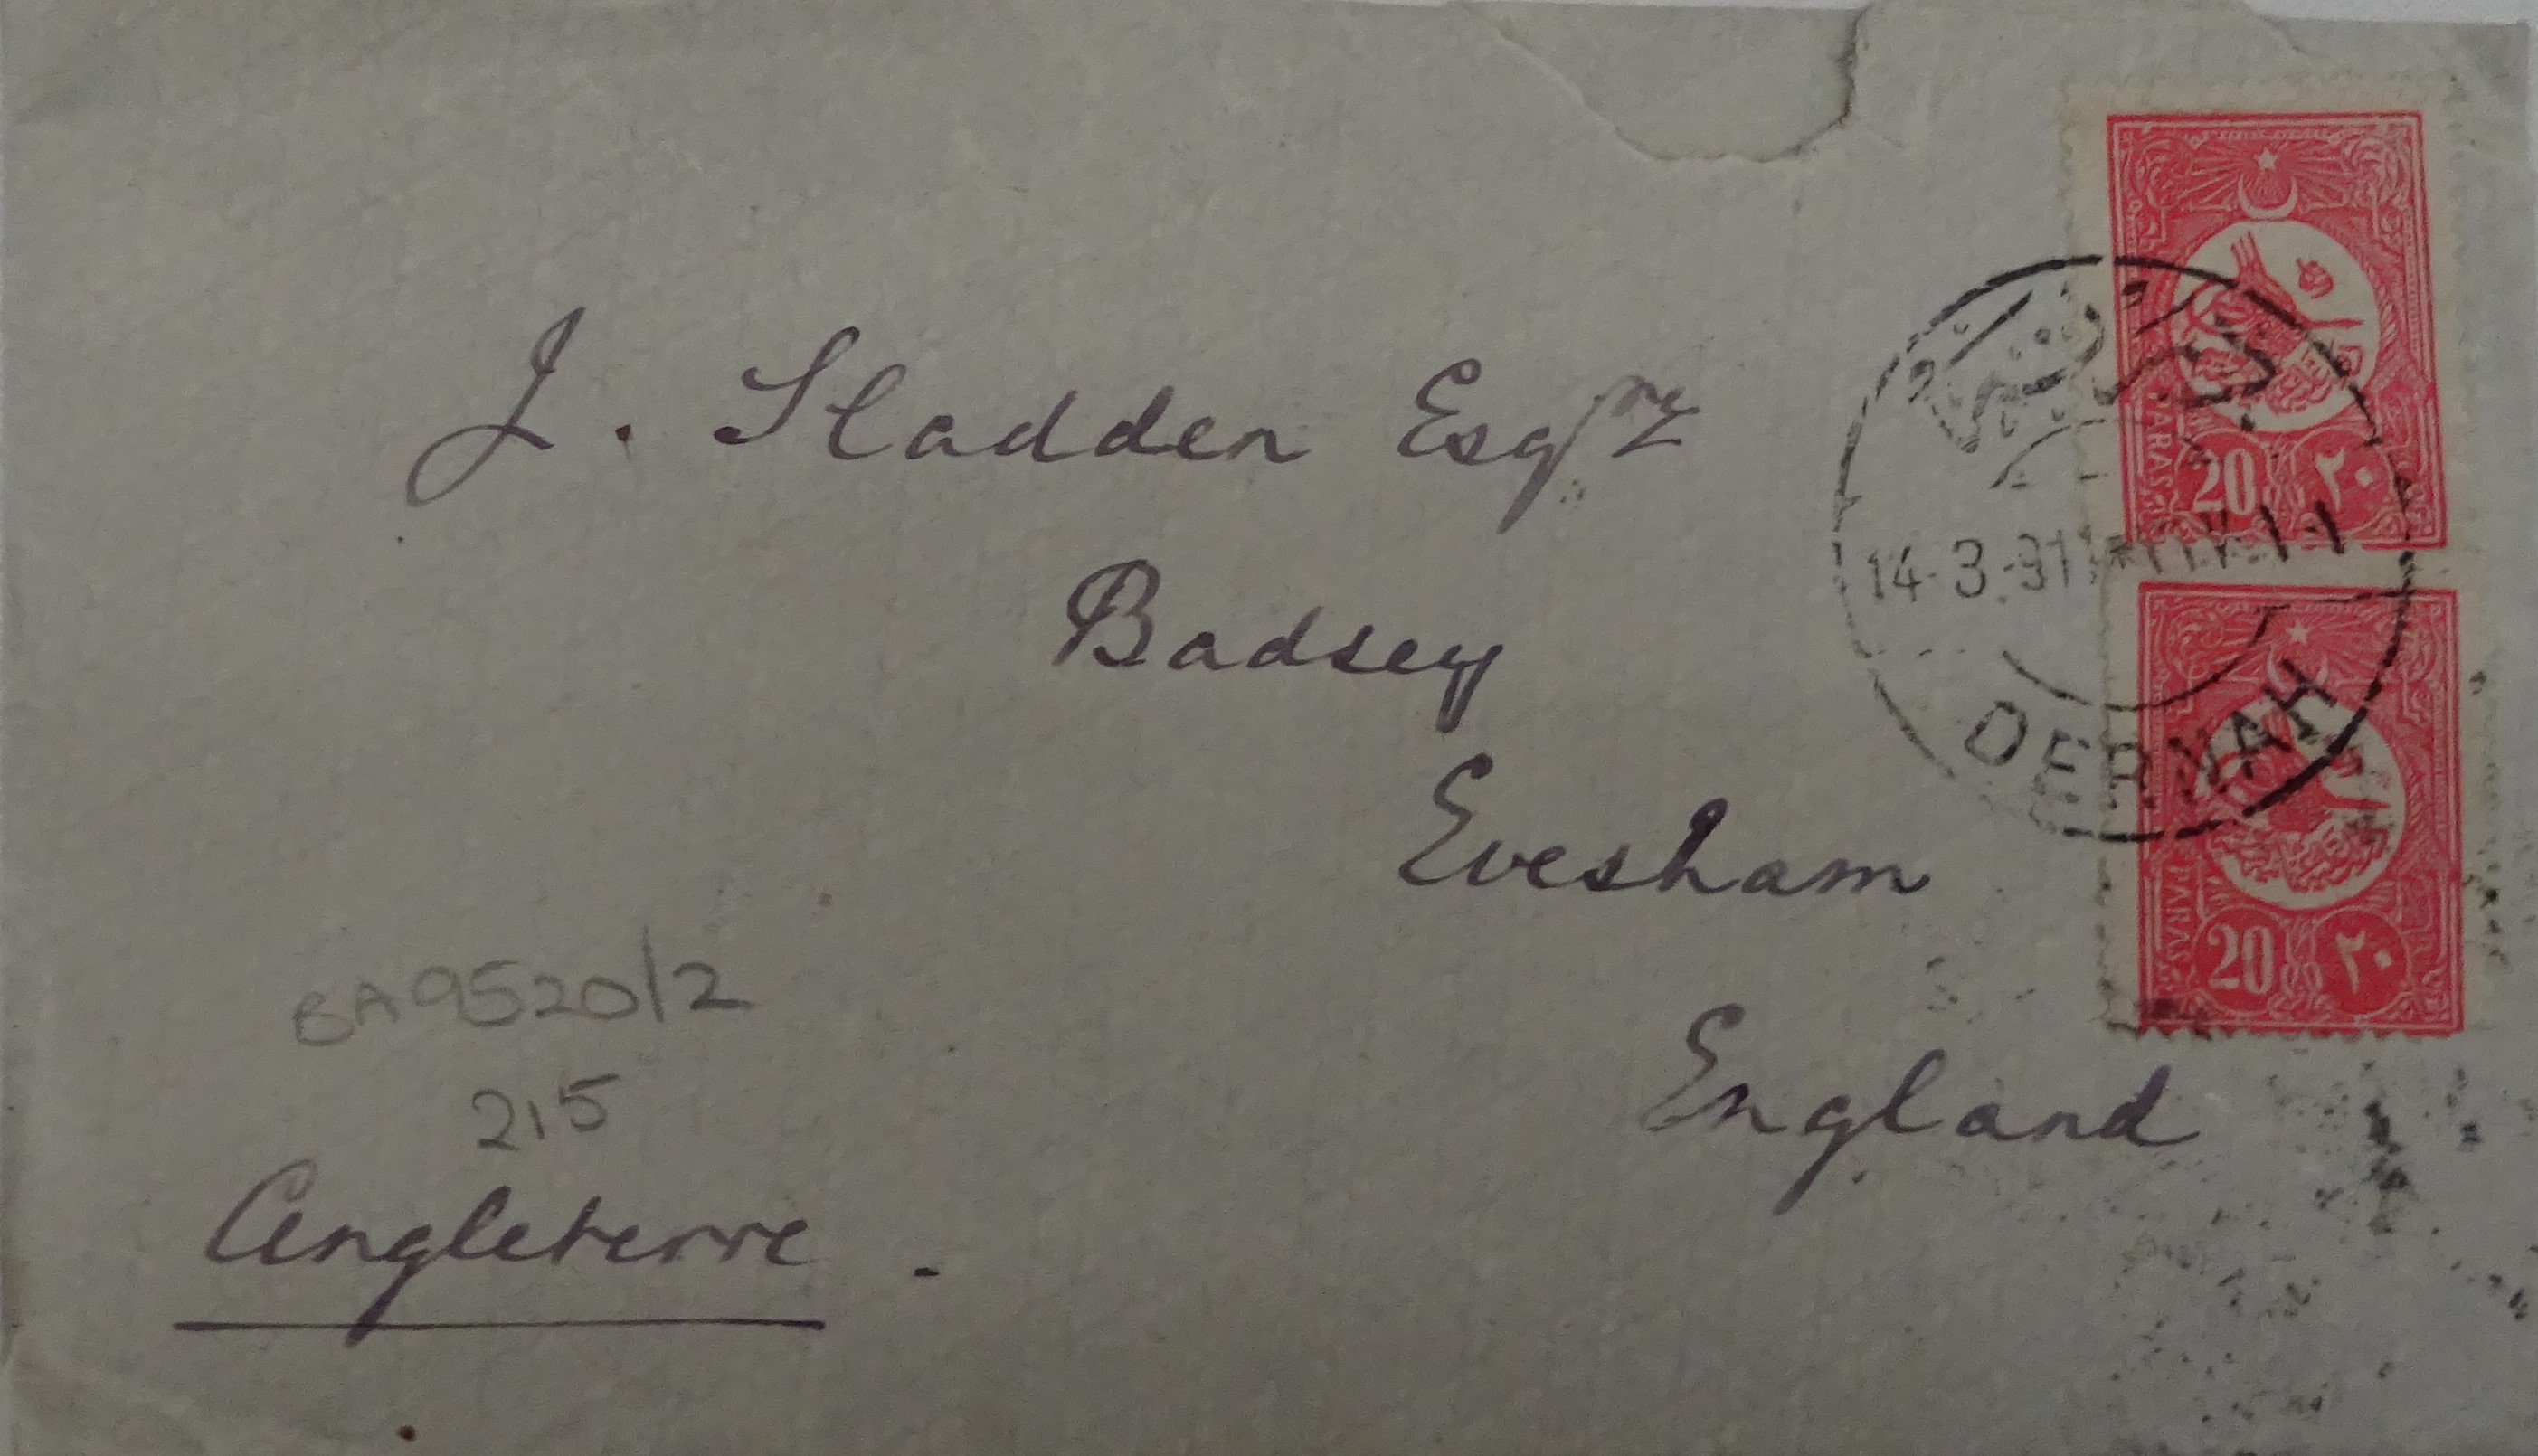 J. Sladden Esqre
Badsey
Evesham
England
BA9520/2
215
Angleterre.
PARAS
20 ٢٠
14.3.31
DERNAH
PARAS
20 ٢٠